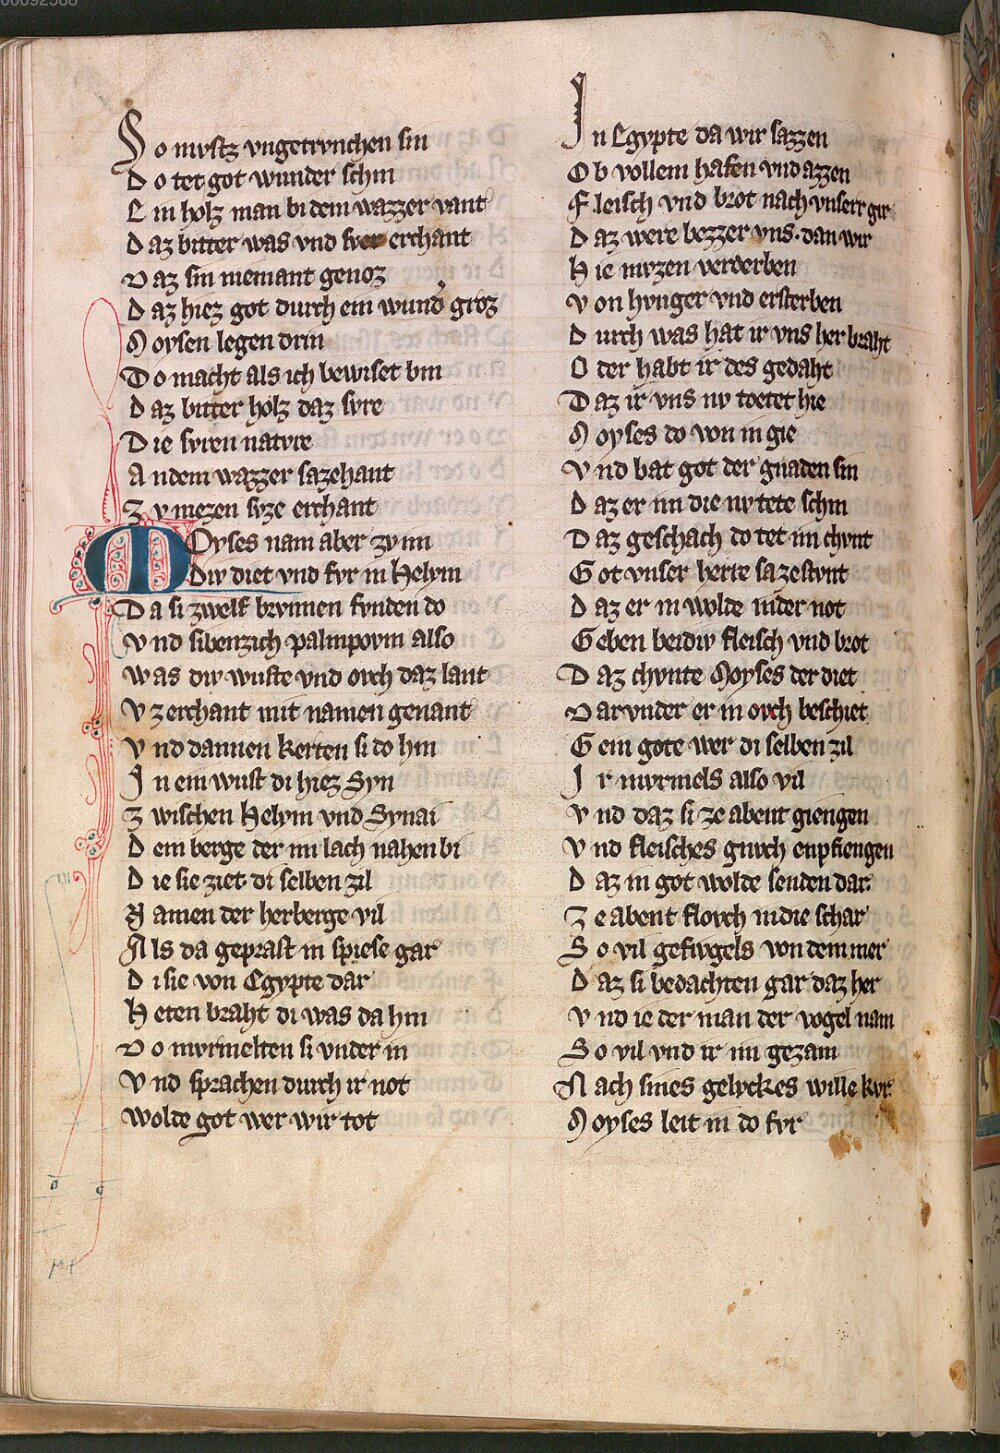 00092588
So mvstz vngetrvnchen sin
Do tet got wunder schin
Ein holz man bi dem wazzer vant
Daz bitter was vnd swer erchant
Daz sin niemant genoz
Daz hiez got durch ein wundˀ groz
Moysen legen drin
Do macht als ich bewiset bin
Daz bitter holz daz svre
Die svren natvre
An dem wazzer sazehant
Zv mezen svze erchant
Moyses nam aber zv im
Div diet vnd fvr in Helym
Da si zwelf brvnnen fvnden do
Vnd sibenzich palmpovm also
Was div wuste vnd ovch daz lant
Vzerchant mit namen genant
Vnd dannen kerten si do hin
In ein wust di hiez Syn
Zwischen Helym vnd Synai
Dem berge der im lach nahen bi
Die sie ziet di selben zil
Namen der herberge vil
Als da geprast in spiese gar
Di sie von Egypte dar
Heten braht di was da hin
Do mvrmelten si vnder in
Vnd sprachen durch ir not
Wolde got wer wir tot
In Egypte da wir sazzen
Ob vollem hafen vnd azzen
Fleisch vnd brot nach vnserr gir
Daz were bezzer vns dan wir
Hie mvzen verderben
Von hvnger vnd ersterben
Durch was hat ir vns her braht
Oder habt ir des gedaht
Daz ir vns nv toetet hie
Moyses do von in gie
Vnd bat got der gnaden sin
Daz er im die nv tete schin
Daz geschach do tet im chvnt
Got vnser herre sa zestvnt
Daz er in wolde in der not
Geben beidiv fleisch vnd brot
Daz chvnte Moyses der diet
Darvnder er in ovch beschiet
Gein gote wer di selben zil
Ir mvrmels also vil
Vnd daz si ze abent giengen
Vnd fleisches gnvch enpfiengen
Daz in got wolde senden dar
Ze abent flovch in die schar
So vil gefivgels von dem mer
Daz si bedachten gar daz her
Vnd ie der man der vogel nam
So vil vnd ir im gezam
Nach sines gelvckes wille kvr
Moyses leit in do fvr